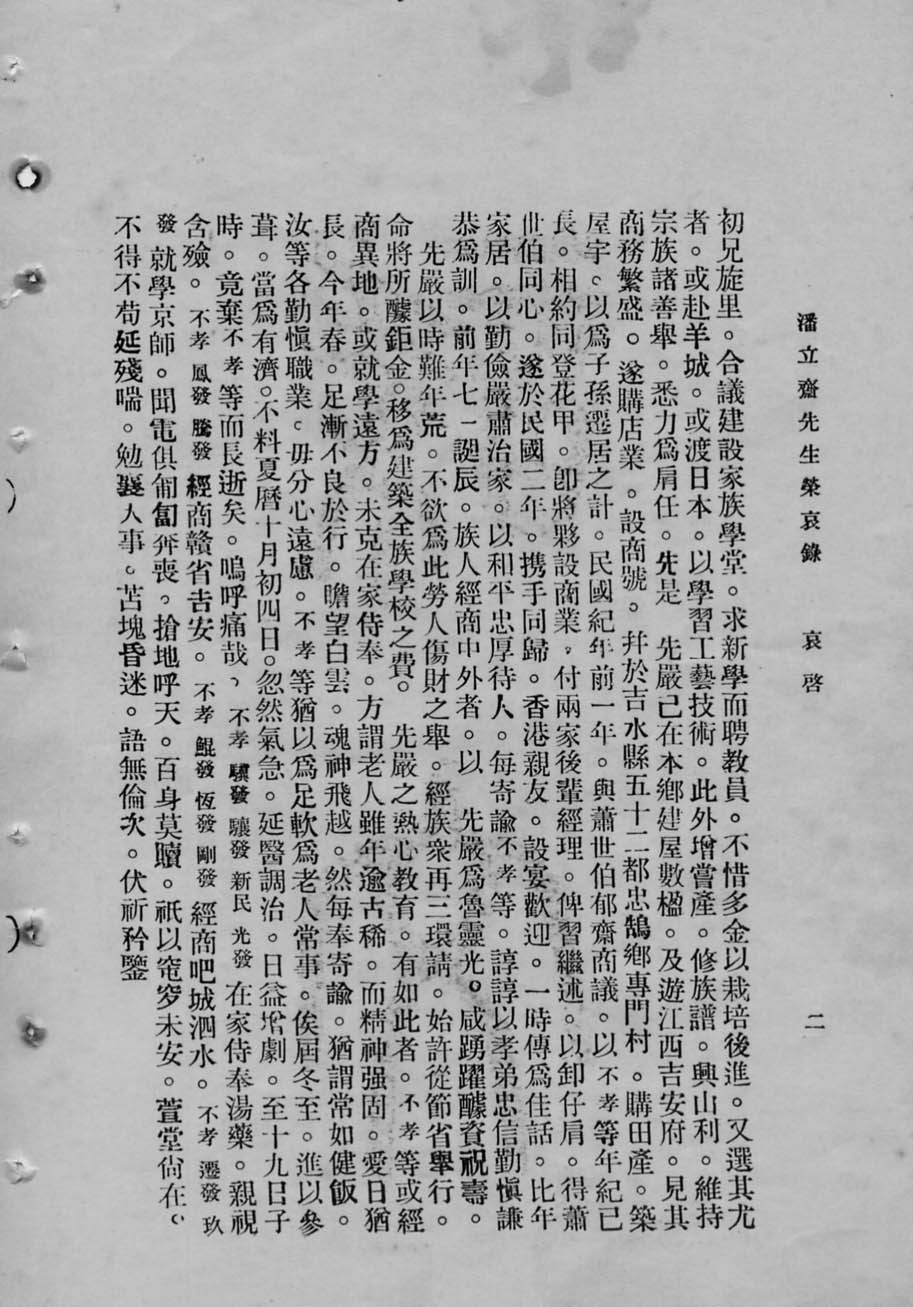 潘立齋先生榮哀錄　哀啓　二
初兄旋里。合議建設家族學堂。求新學而聘教員。不惜多金以栽培後進。又選其尤
者。或赴羊城。或渡日本。以學習工藝技術。此外增嘗產。修族譜。興山利。維持
宗族諸善舉。悉力爲肩任。先是　先嚴已在本鄉建屋數楹。及遊江西吉安府。見其
商務繁盛。遂購店業。設商號。幷於吉水縣五十二都忠鵠鄉專門村。購田產。築
屋宇。以爲子孫遷居之計。民國紀年前一年。與蕭世伯郁齋商議。以不孝等年紀已
長。相約同登花甲。卽將夥設商業，付兩家後輩經理。俾習繼述。以卸仔肩。得蕭
世伯同心。遂於民國二年。携手同歸。香港親友。設宴歡迎。一時傳爲佳話。比年
家居。以勤儉嚴肅治家。以和平忠厚待人。每寄諭不孝等。諄諄以孝弟忠信勤愼謙
恭爲訓。前年七一誕辰。族人經商中外者。以　先嚴爲魯靈光。咸踴躍醵資祝壽。
先嚴以時難年荒。不欲爲此勞人傷財之舉。經族衆再三環請。始許從節省舉行。
命將所醵鉅金。移爲建築全族學校之費。　先嚴之熱心教育。有如此者。不孝等或經
商異地。或就學遠方。未克在家侍奉。方謂老人雖年逾古稀。而精神强固。愛日猶
長。今年春。足漸不良於行。瞻望白雲。魂神飛越。然每奉寄諭。猶謂常如健飯。
汝等各勤愼職業。毋分心遠慮。不孝等猶以爲足軟爲老人常事。俟屆冬至。進以參
葺。當爲有濟。不料夏曆十月初四日。忽然氣急。延醫調治。日益增劇。至十九日子
時。竟棄不孝等而長逝矣。嗚呼痛哉、不孝驥發驤發新民光發在家侍奉湯藥。親視
含殮。不孝鳳發騰發經商贛省吉安。不孝鯤發恆發剛發經商吧城泗水。不孝遷發玖
發就學京師。聞電俱匍匐奔喪，搶地呼天。百身莫贖。祇以窀穸未安。萱堂尙在。
不得不苟延殘喘。勉襄人事。苫塊昏迷。語無倫次。伏祈矜鑒